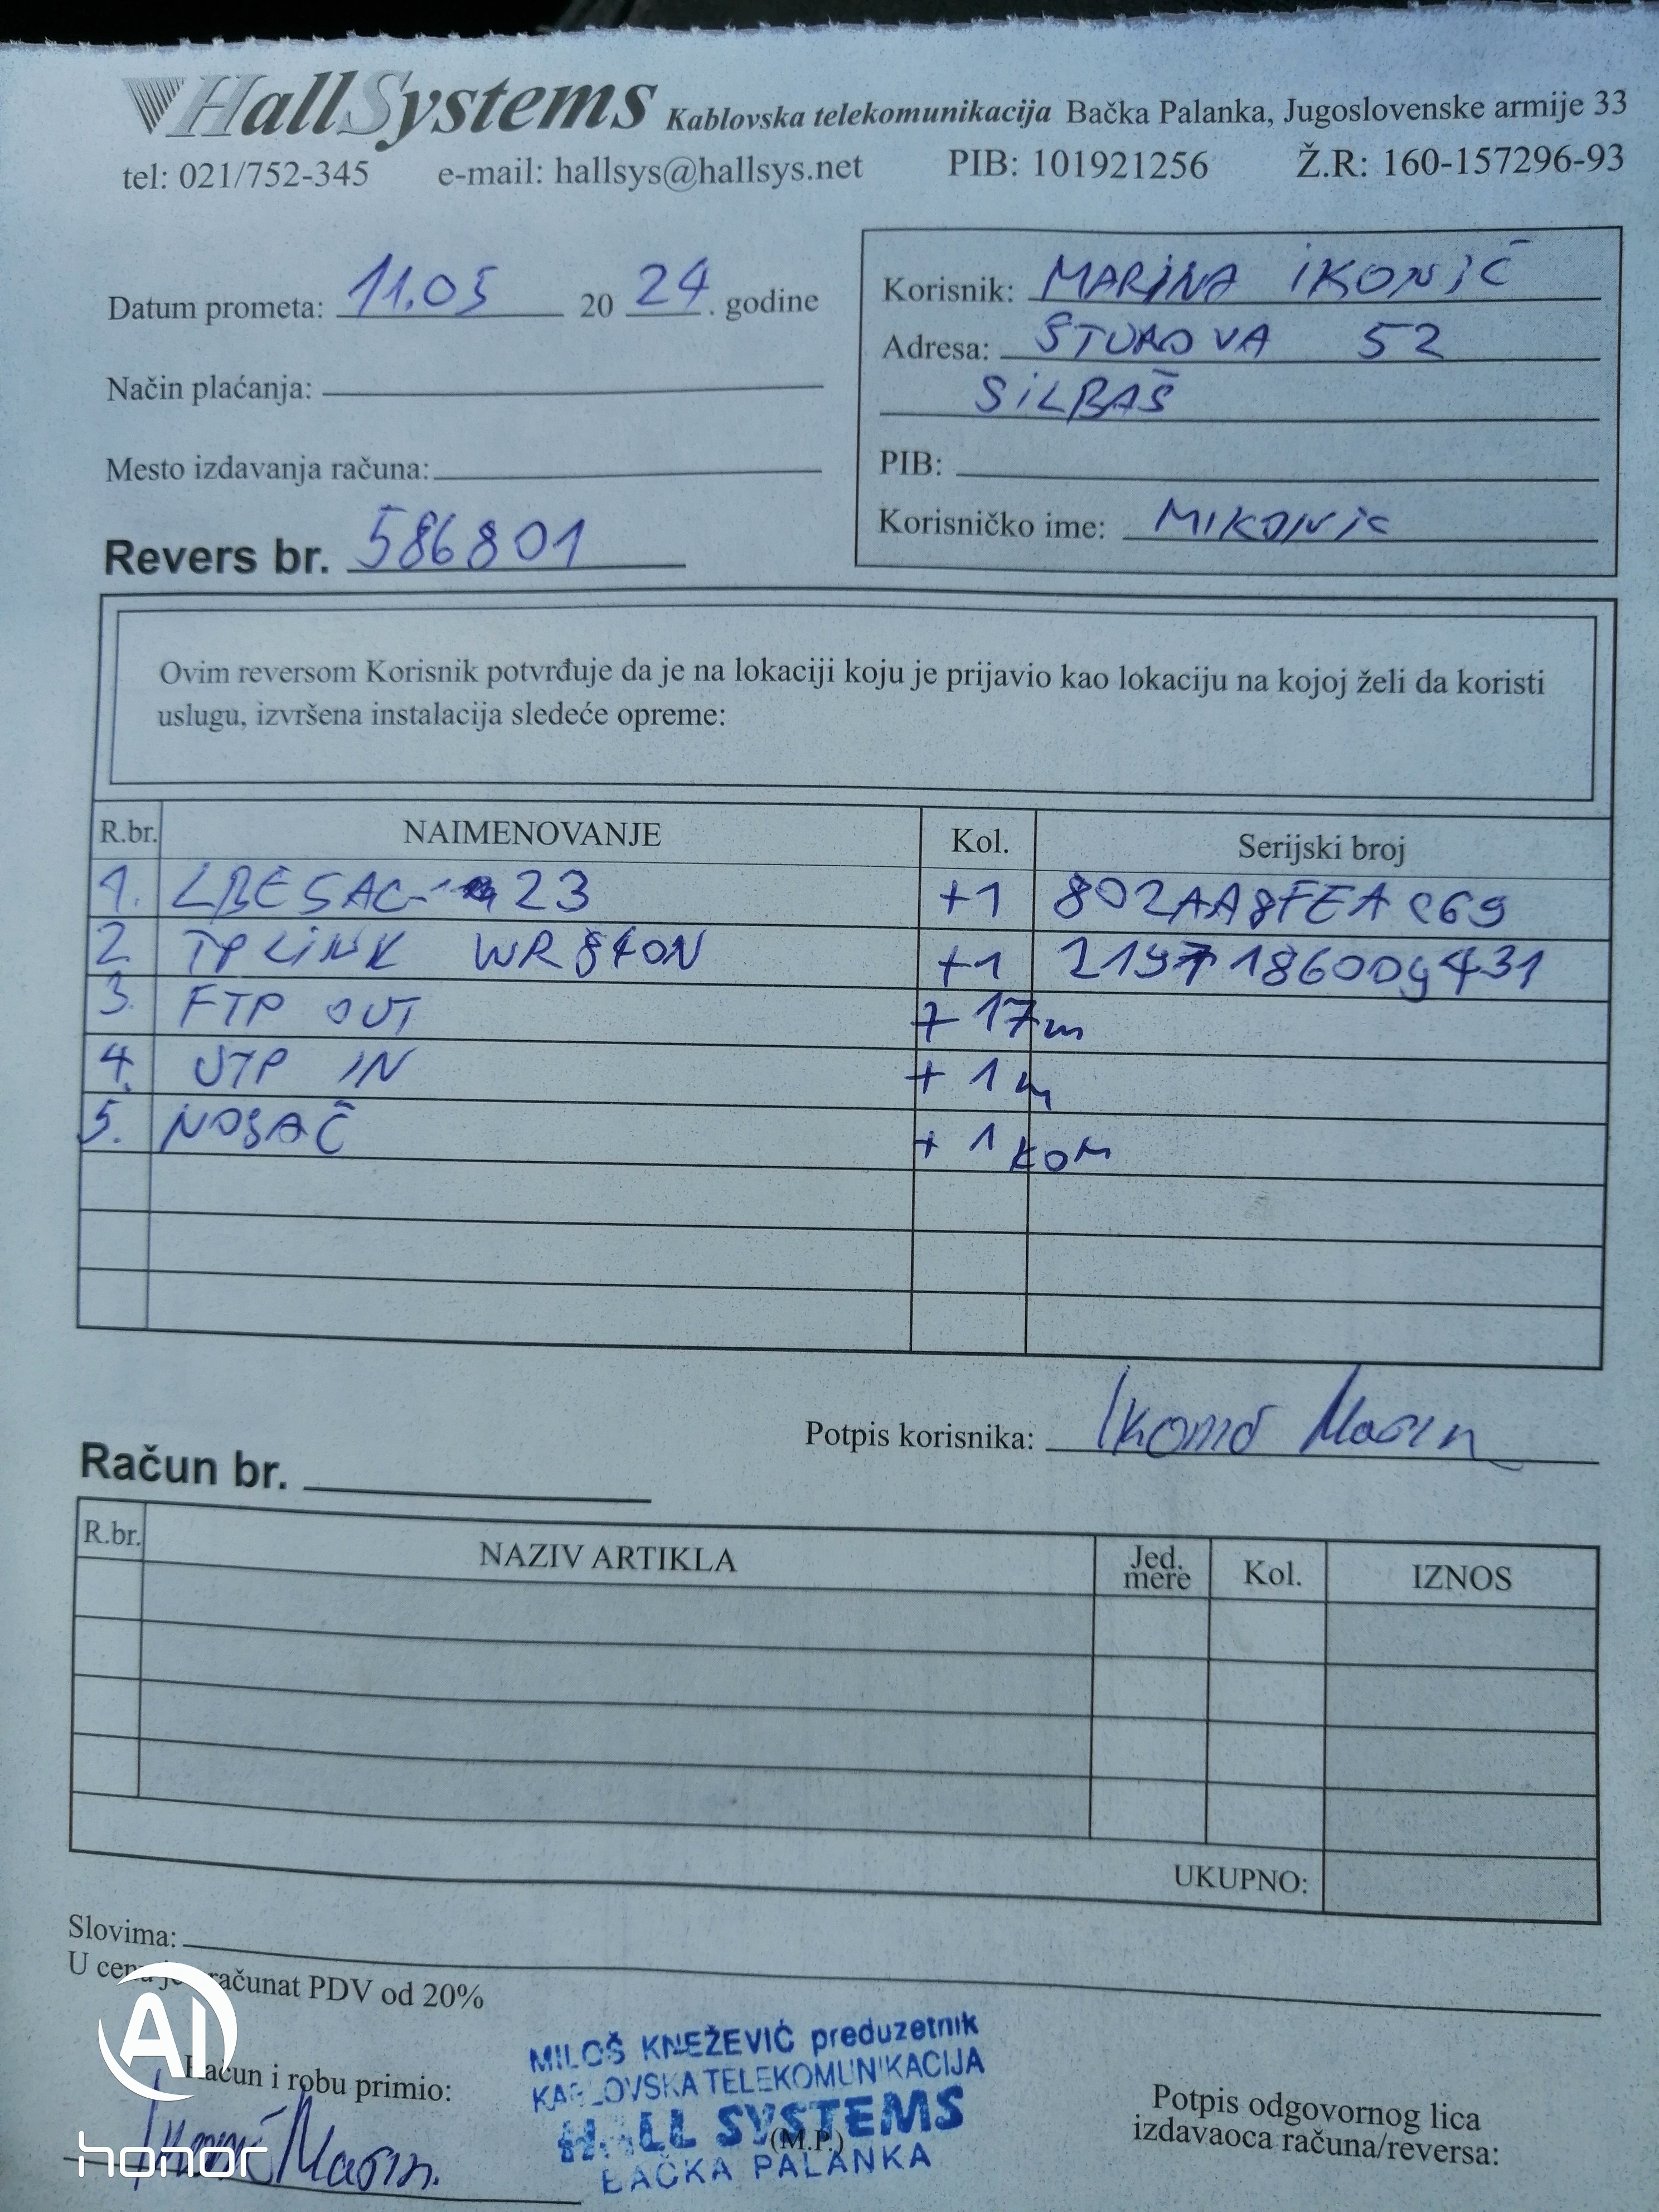 HallSystems Kablovska telekomunikacija Bačka Palanka, Jugoslovenske armije 33
tel: 021/752-345 e-mail: hallsys@hallsys.net PIB: 101921256 Ž.R: 160-157296-93
Datum prometa: 11.05 20 24. godine
Način plaćanja:
Mesto izdavanja računa:
Revers br. 586801
Korisnik: MARINA IKONIĆ
Adresa: ŠTUROVA 52
SILBAŠ
PIB:
Korisničko ime: MIKONIC
Ovim reversom Korisnik potvrđuje da je na lokaciji koju je prijavio kao lokaciju na kojoj želi da koristi
uslugu, izvršena instalacija sledeće opreme:
R.br. NAIMENOVANJE Kol. Serijski broj
1. LBE 5AC- 23 +1 802AA8FEAC69
2. TP LINK WR840N +1 2197186009431
3. FTP OUT + 17m
4. UTP IN + 1m
5. NOSAČ + 1 KOM
Potpis korisnika: Ikonić Marina
Račun br.
R.br. NAZIV ARTIKLA Jed. mere Kol. IZNOS
UKUPNO:
Slovima:
U cenu je računat PDV od 20%
AI
Račun i robu primio:
Ikonić Marina
honor
MILOŠ KNEŽEVIĆ preduzetnik
KABLOVSKA TELEKOMUNIKACIJA
HALL SYSTEMS
(M.P.)
BAČKA PALANKA
Potpis odgovornog lica
izdavaoca računa/reversa: